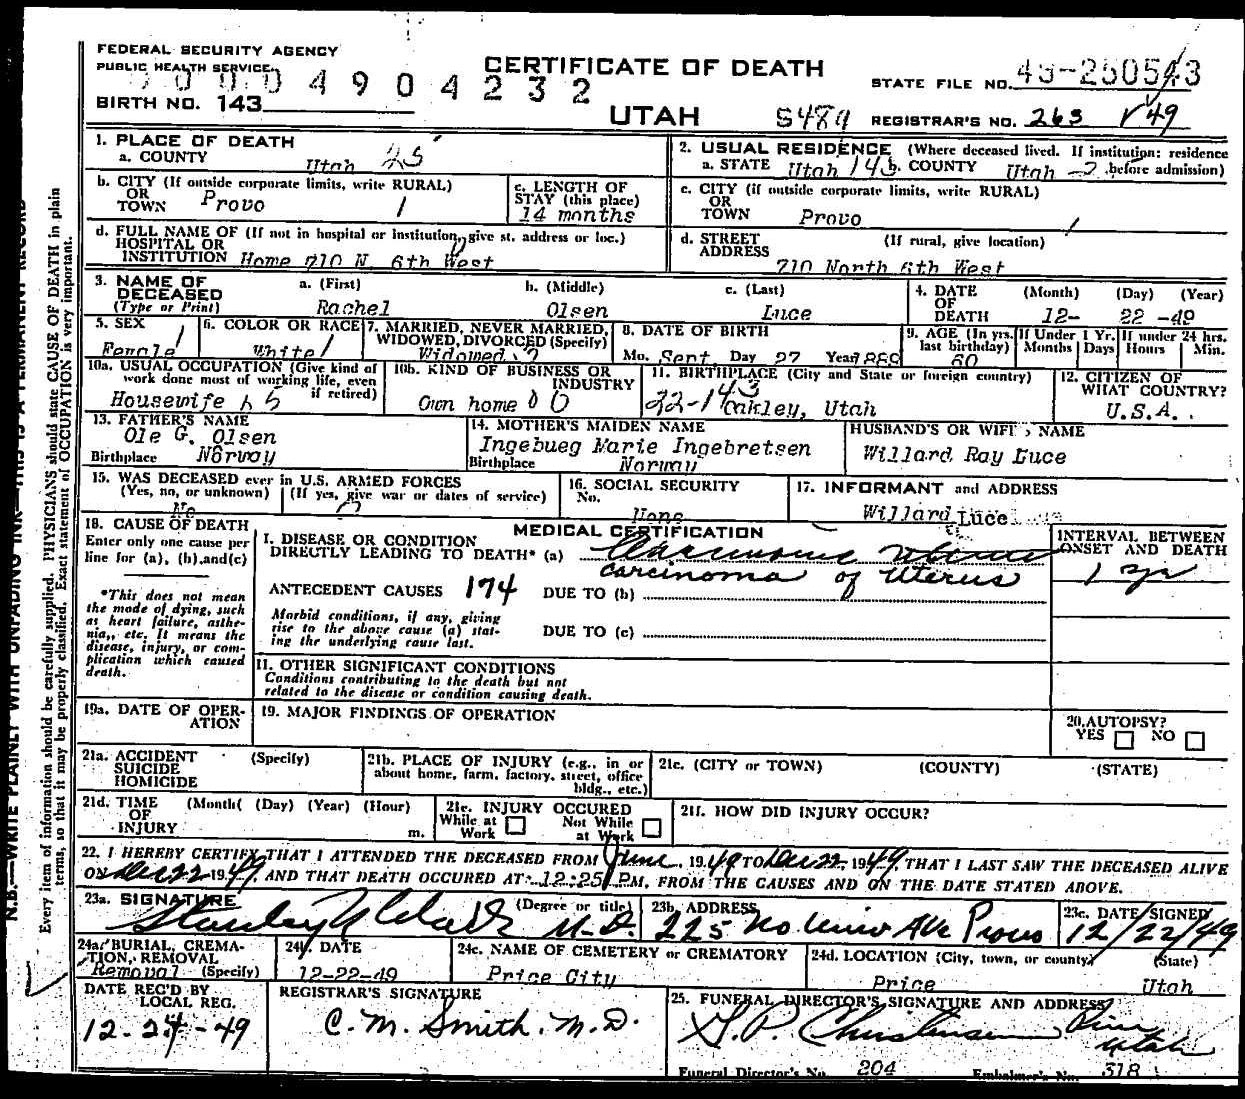 FEDERAL SECURITY AGENCY
PUBLIC HEALTH SERVICE
4904232
BIRTH NO. 143
CERTIFICATE OF DEATH
UTAH
STATE FILE NO.
S489 REGISTRAR'S NO. 263 V49
1. PLACE OF DEATH
a. COUNTY Utah 25
2. USUAL RESIDENCE (Where deceased lived. If institution: residence
a. STATE Utah 143 b. COUNTY Utah -2 before admission)
b. CITY (If outside corporate limits, write RURAL)
OR
TOWN Provo 1
c. LENGTH OF
STAY (this place)
14 months
c. CITY (if outside corporate limits, write RURAL)
OR
TOWN Provo 1
d. FULL NAME OF (If not in hospital or institution, give st. address or loc.)
HOSPITAL OR
INSTITUTION Home 710 N. 6th West
d. STREET (If rural, give location)
ADDRESS
710 North 6th West
3. NAME OF
DECEASED
(Type or Print)
a. (First) b. (Middle) c. (Last)
Rachel Olsen Luce
4. DATE (Month) (Day) (Year)
OF
DEATH 12- 22 -49
5. SEX
Female 1
6. COLOR OR RACE
White 1
7. MARRIED, NEVER MARRIED,
WIDOWED, DIVORCED (Specify)
Widowed
8. DATE OF BIRTH
Mo. Sept Day 27 Year 1889
9. AGE (In yrs.
last birthday)
60
If Under 1 Yr.
Months Days
If under 24 hrs.
Hours Min.
10a. USUAL OCCUPATION (Give kind of
work done most of working life, even
if retired)
Housewife
10b. KIND OF BUSINESS OR
INDUSTRY
Own home
11. BIRTHPLACE (City and State or foreign country)
22-143
Oakley, Utah
12. CITIZEN OF
WHAT COUNTRY?
U.S.A.
13. FATHER'S NAME
Ole G. Olsen
Birthplace Norway
14. MOTHER'S MAIDEN NAME
Ingebueg Marie Ingebretsen
Birthplace Norway
HUSBAND'S OR WIFE'S NAME
Willard Ray Luce
15. WAS DECEASED ever in U.S. ARMED FORCES
(Yes, no, or unknown) (If yes, give war or dates of service)
No 0
16. SOCIAL SECURITY
No.
None
17. INFORMANT and ADDRESS
Willard Luce
18. CAUSE OF DEATH
Enter only one cause per
line for (a), (b), and (c)
*This does not mean
the mode of dying, such
as heart failure, asthe-
nia, etc. It means the
disease, injury, or com-
plication which caused
death.
MEDICAL CERTIFICATION
I. DISEASE OR CONDITION
DIRECTLY LEADING TO DEATH* (a) Carcinoma Uterus
carcinoma of Uterus
ANTECEDENT CAUSES 174 DUE TO (b)
Morbid conditions, if any, giving
rise to the above cause (a) stat-
ing the underlying cause last.
DUE TO (c)
INTERVAL BETWEEN
ONSET AND DEATH
1 yr
II. OTHER SIGNIFICANT CONDITIONS
Conditions contributing to the death but not
related to the disease or condition causing death.
19a. DATE OF OPER-
ATION
19. MAJOR FINDINGS OF OPERATION
20. AUTOPSY?
YES NO
21a. ACCIDENT (Specify)
SUICIDE
HOMICIDE
21b. PLACE OF INJURY (e.g., in or
about home, farm, factory, street, office
bldg., etc.)
21c. (CITY or TOWN) (COUNTY) (STATE)
21d. TIME (Month( (Day) (Year) (Hour)
OF
INJURY m.
21e. INJURY OCCURED
While at Not While
Work at Work
21f. HOW DID INJURY OCCUR?
22. I HEREBY CERTIFY THAT I ATTENDED THE DECEASED FROM June, 1949 TO Dec 22, 1949, THAT I LAST SAW THE DECEASED ALIVE
ON Dec 22 1949, AND THAT DEATH OCCURED AT 12:25 PM, FROM THE CAUSES AND ON THE DATE STATED ABOVE.
23a. SIGNATURE (Degree or title)
Stanley N Clark M.D.
23b. ADDRESS
225 No Univ Ave Provo
23c. DATE SIGNED
12/22/49
24a. BURIAL, CREMA-
TION, REMOVAL
Removal (Specify)
24b. DATE
12-22-49
24c. NAME OF CEMETERY or CREMATORY
Price City
24d. LOCATION (City, town, or county) (State)
Price Utah
DATE REC'D BY
LOCAL REG.
12-27-49
REGISTRAR'S SIGNATURE
C. M. Smith. M.D.
25. FUNERAL DIRECTOR'S SIGNATURE AND ADDRESS
G. P. Christensen Price
Utah
Funeral Director's No. 204 Embalmer's No. 318
N.B.—WRITE PLAINLY WITH UNFADING INK—THIS IS A PERMANENT RECORD
Every item of information should be carefully supplied. PHYSICIANS should state CAUSE OF DEATH in plain
terms, so that it may be properly classified. Exact statement of OCCUPATION is very important.